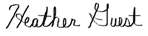 Heather Guest